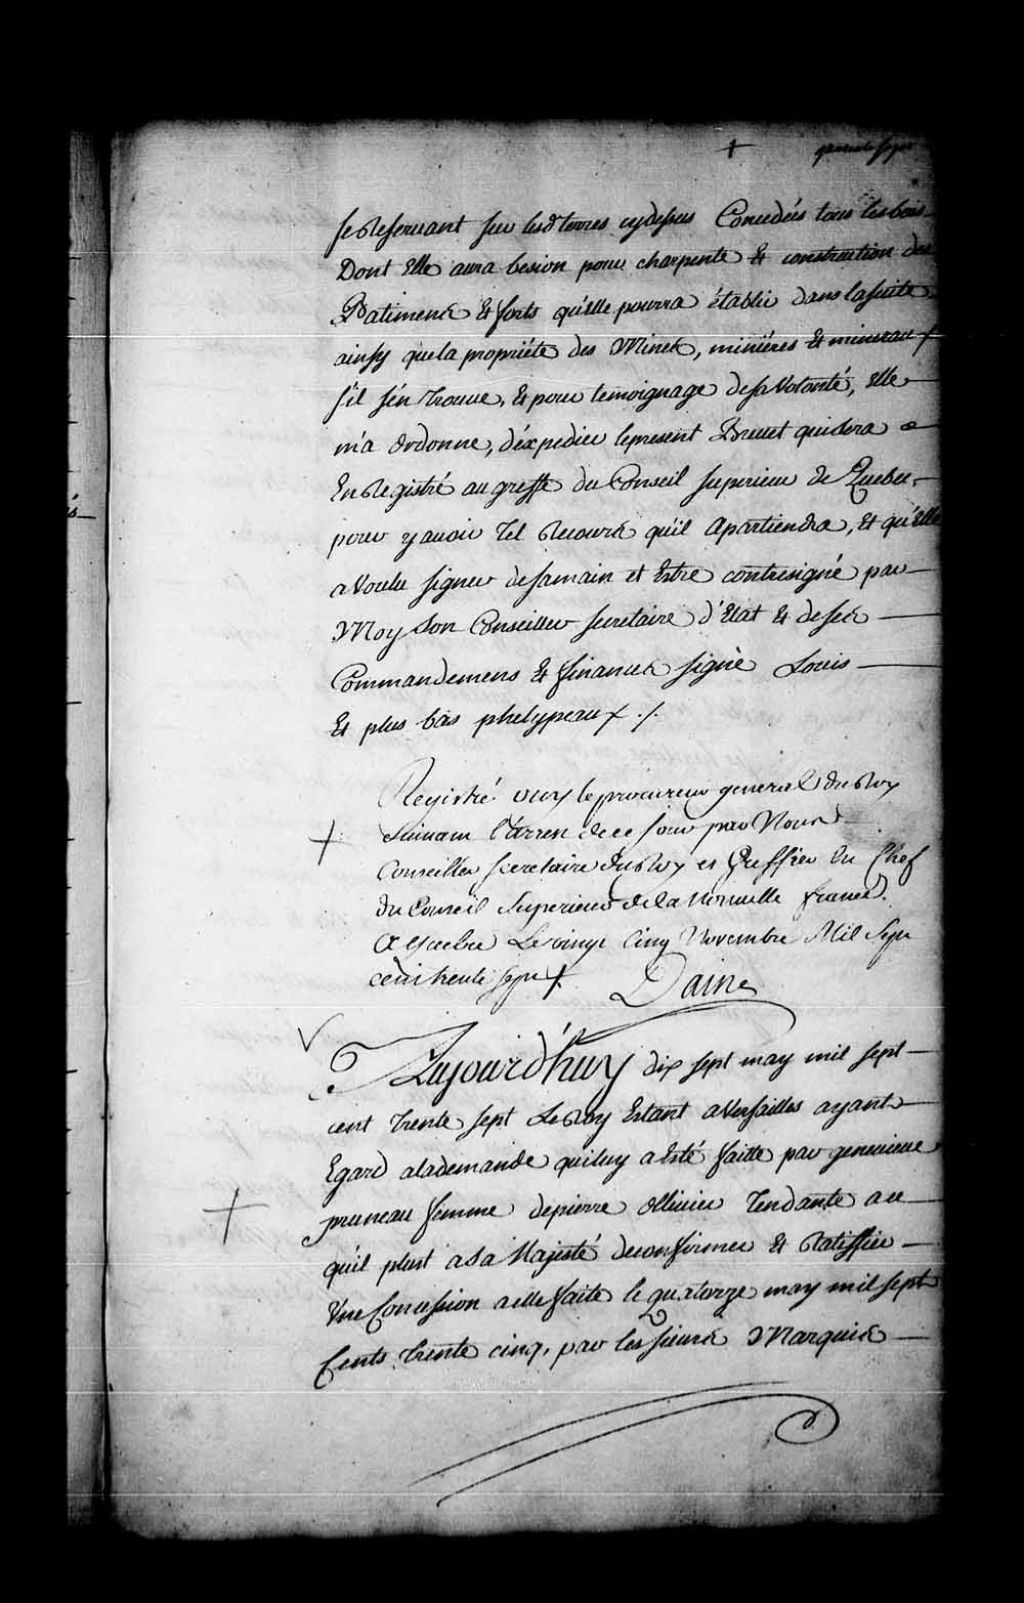 se Reservant sur lesd terres cydessus Concedées tous les bois
Dont Elle aura besoin pour charpente & construction des
Batimens & forts qu'elle pourra établir dans la suite
ainsy que la propriéte des Mines, miniéres & mineraux
s'il s'en trouve, & pour temoignage de sa Volonté, Elle
m'a Ordonné, d'éxpedier le present Brevet qui sera
EnRegistré au greffe du Conseil superieur de Quebec
pour y avoir tel Recours qu'il Apartiendra, Et qu'Elle
a Voulu signer de sa main et Estre contresigné par
Moy Son Conseiller secretaire d'Etat & de ses
Commandemens & finances signé Louis
Et plus bas phelypeaux ./.
Registré ouy le procureur general du Roy
Suivant l'arrest de ce jour par Nous
Conseiller secretaire du Roy et Greffier En Chef
du Conseil Superieur de la Nouvelle france.
A Quebec Le vingt Cinq Novembre Mil Sept
cent trente sept
Daine
Aujourd'huy dix sept may mil sept
cent trente sept Le Roy Estant a Versailles ayant
Egard a la demande qui luy a Esté faitte par genevieve
pruneau femme de pierre Ollivier tendante a ce
qu'il plust a Sa Majesté de confirmer & Ratiffier
Une Concession a elle faite le quatorze may mil sept
Cents trente cinq, par les sieurs Marquis